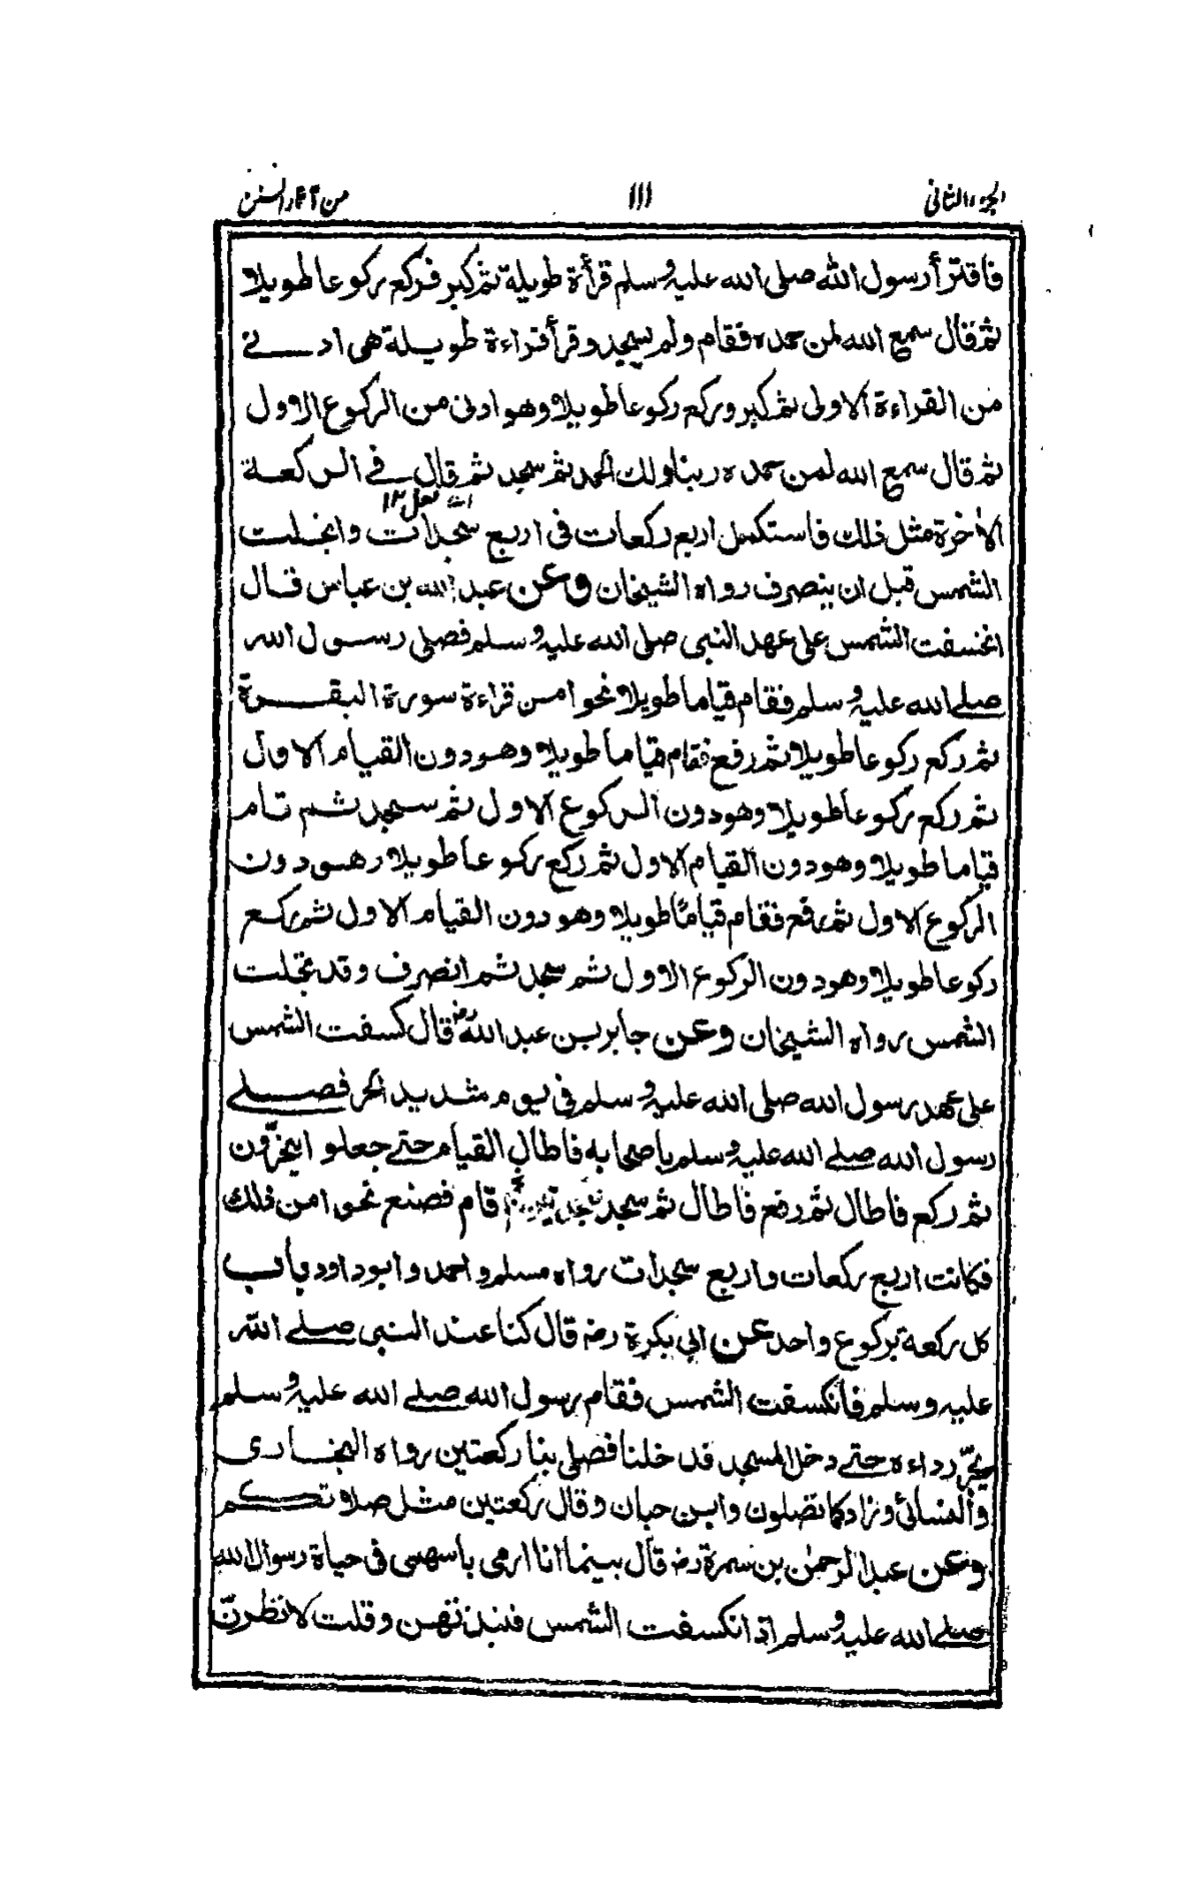 الجزء الثانى ١١١ من آثار السنن
فاقترأ رسول الله صلى الله عليه وسلم قرأة طويلة ثم كبر فركع ركوعا طويلا
ثم قال سمع الله لمن حمده فقام ولم يسجد وقرأ قراءة طويلة هى ادنے
من القراءة الاولى ثم كبر وركع ركوعا طويلا وهو ادنى من الركوع الاول
ثم قال سمع الله لمن حمده ربنا ولك الحمد ثم سجد ثم قال فے الركعة
الاٰخرة مثل ذلك فاستكمل اربع ركعات فى اربع سجدات وانجلت
الشمس قبل ان ينصرف رواه الشيخان وعن عبد الله بن عباس قال
انخسفت الشمس على عهد النبى صلى الله عليه وسلم فصلى رسول الله
صلے الله عليه وسلم فقام قياما طويلا نحوا من قراءة سورة البقرة
ثم ركع ركوعا طويلا ثم رفع فقام قياما طويلا وهو دون القيام الاول
ثم ركع ركوعا طويلا وهو دون الركوع الاول ثم سجد ثم قام
قياما طويلا وهو دون القيام الاول ثم ركع ركوعا طويلا وهو دون
الركوع الاول ثم رفع فقام قيامًا طويلا وهو دون القيام الاول ثم ركع
ركوعا طويلا وهو دون الركوع الاول ثم سجد ثم انصرف وقد تجلت
الشمس رواه الشيخان وعن جابر بن عبد اللهؓ قال كسفت الشمس
على عهد رسول الله صلى الله عليه وسلم فى يوم شديد الحر فصلے
رسول الله صلے الله عليه وسلم باصحابه فاطال القيام حتے جعلوا يخرّون
ثم ركع فاطال ثم رفع فاطال ثم سجد سجدتين ثم قام فصنع نحوا من ذلك
فكانت اربع ركعات واربع سجدات رواه مسلم واحمد وابوداود باب
كل ركعة بركوع واحد عن ابى بكرة رضه قال كنا عند النبى صلے الله
عليه وسلم فانكسفت الشمس فقام رسول الله صلے الله عليه وسلم
يجرّ رداءه حتے دخل المسجد فدخلنا فصلى بنا ركعتين رواه البخارى
والنسائى وزاد كما تصلون وابن حبان وقال ركعتين مثل صلاتكم
وعن عبد الرحمٰن بن سمرة رضه قال بينما انا ارمى باسهمى فى حياة رسول الله
صلے الله عليه وسلم اذ انكسفت الشمس فنبذتهن وقلت لانظرنّ